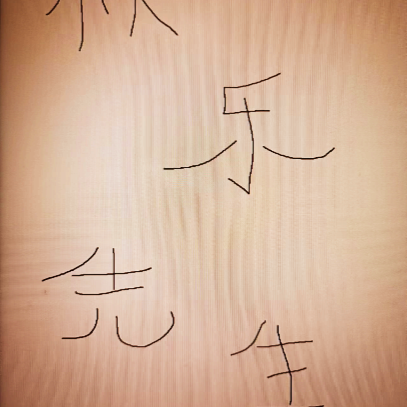 乐
先生